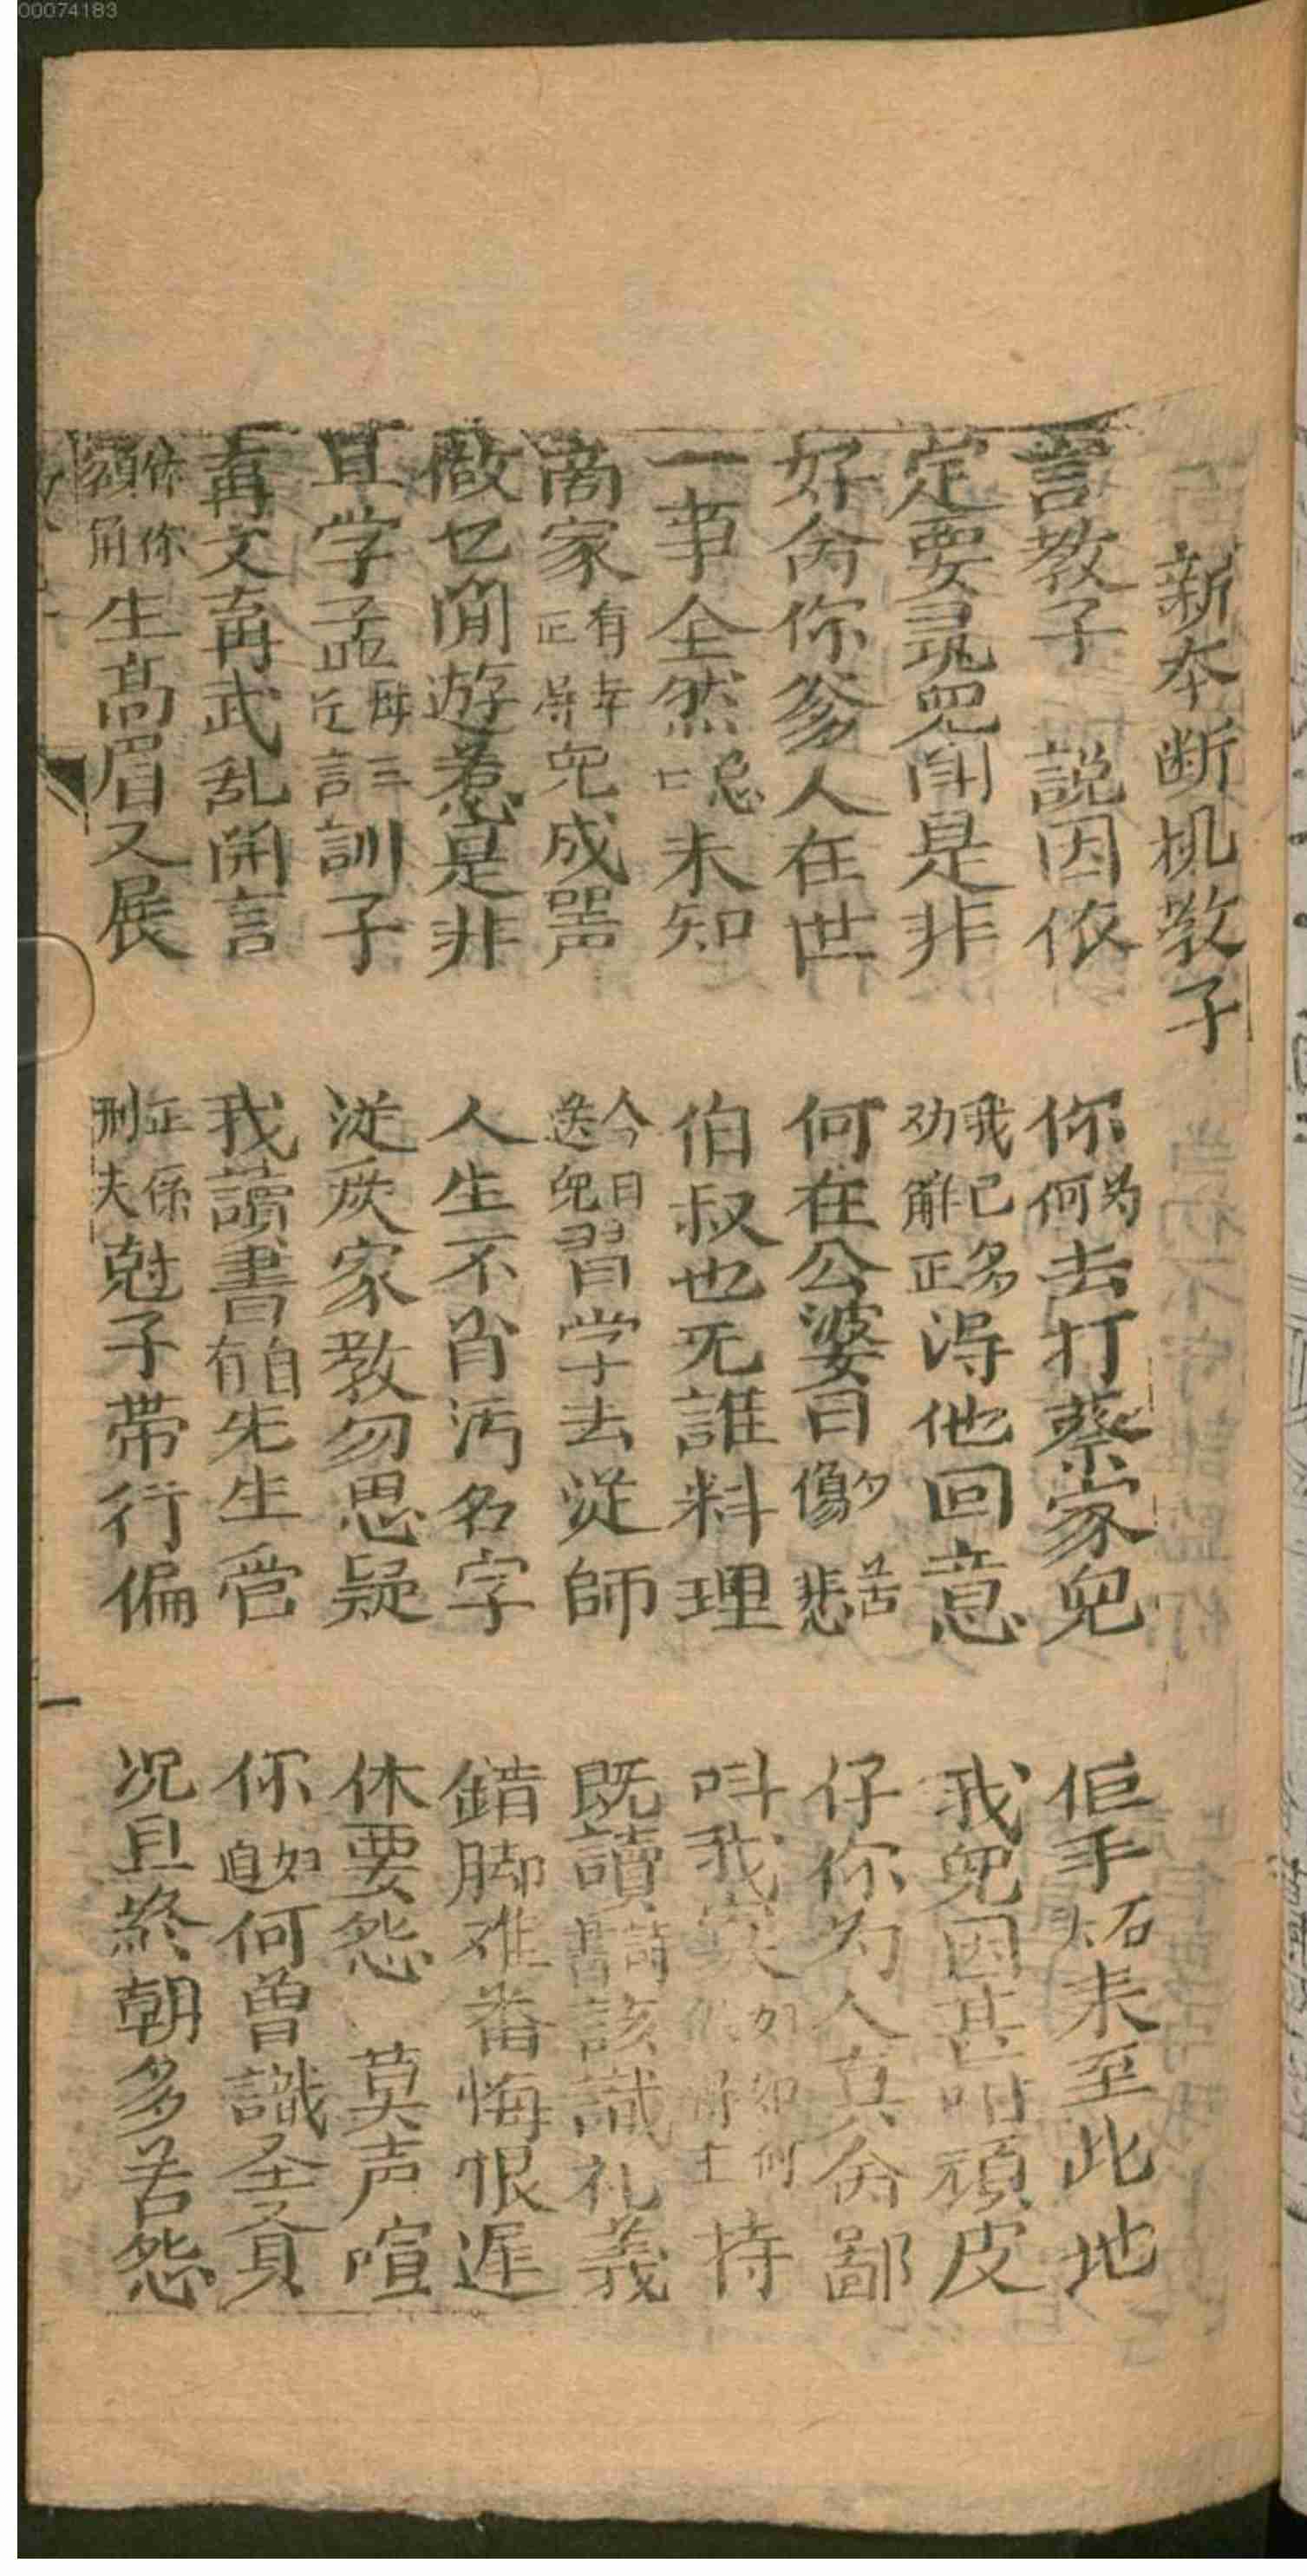 00074183
新本断机教子
言教子 説因依 你为何去打蔡家兒 佢手 未至此地
定要寻兒閗是非 我已多劝觧正得他回意 我兒因甚咁頑皮
好俞你爹人在世 何在公婆日夕苦傷悲 仔你为人真俞鄙
一事全然唿未知 伯叔也无誰料理 呌我 如何 持
商家有幸正得兒成噐 今日送兒習学去從師 既讀詩書該識礼義
做乜閒遊惹是非 人生不肖汚名字 錯脚难番悔恨遲
且学孟母三迁訓子 從灰家教勿思疑 休要怨 莫声喧
再文再武乱開言 我讀書有自先生管 你如迫何曾識圣賢
你你額角生高眉又展 正係刑夫尅子帶行偏 况且終朝多苦怨
一